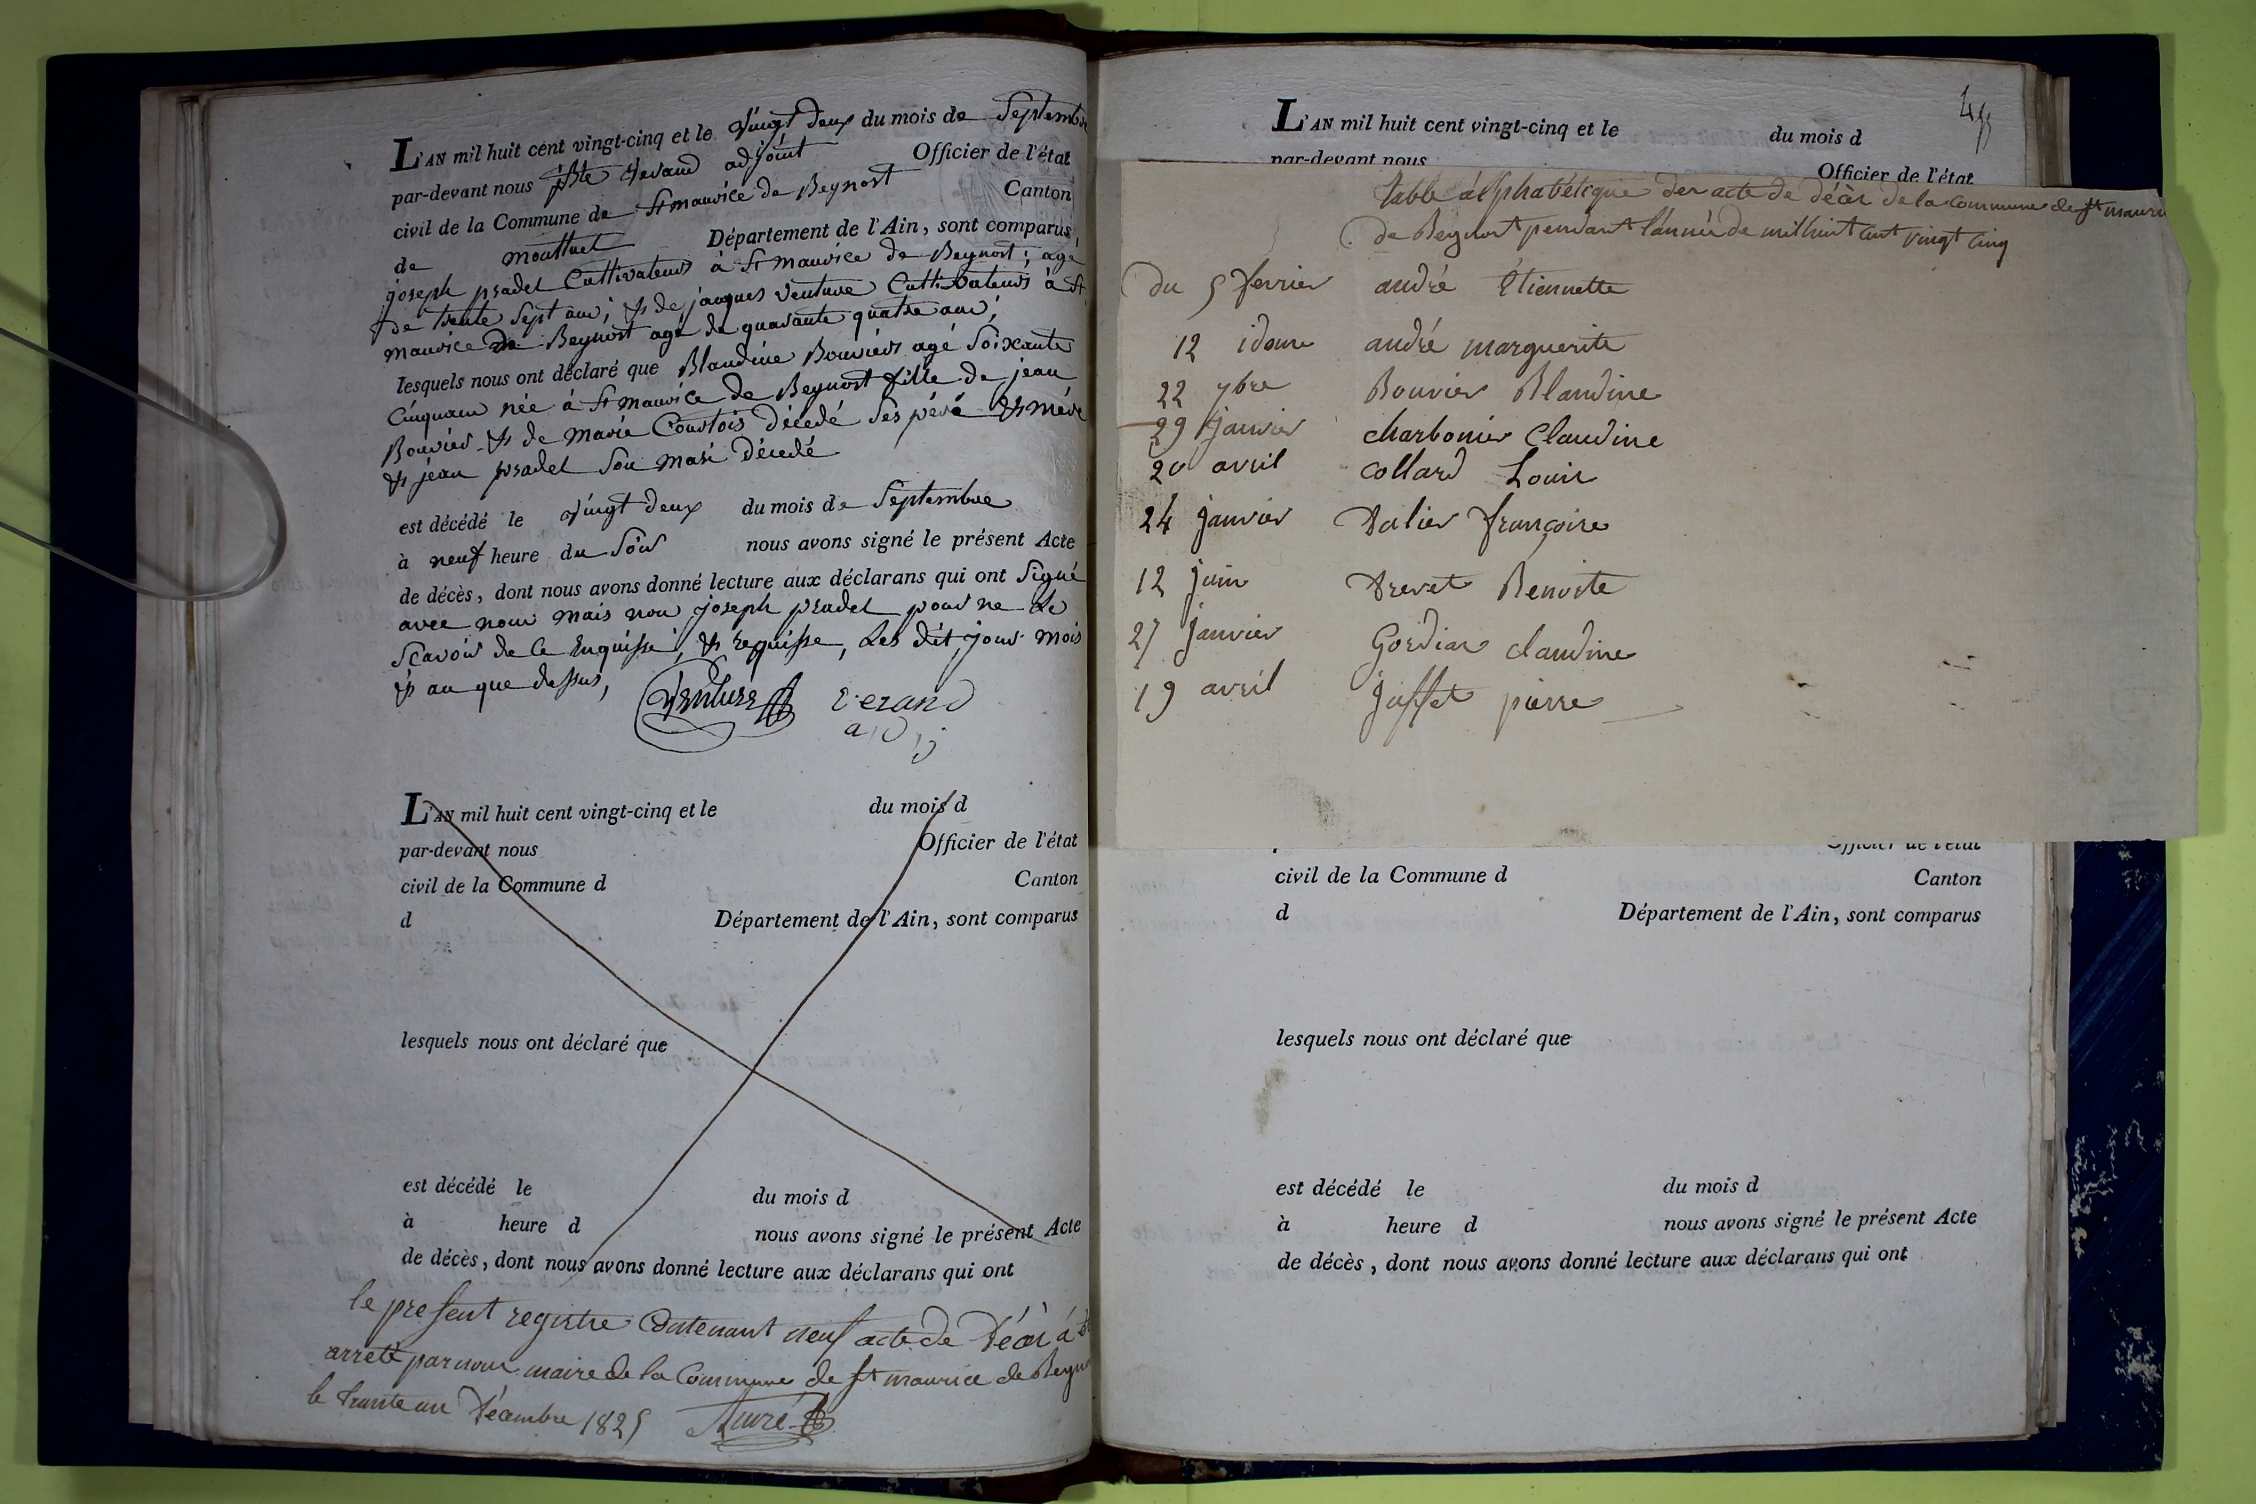 L'AN mil huit cent vingt-cinq et le vingt deux du mois de Septembre
par-devant nous adjoint Officier de l'état
civil de la Commune de St maurice de Beynost Canton
de montluel Département de l'Ain, sont comparus,
joseph pradel Cultivateur à St maurice de Beynost ; agé
de trente Sept ans ; & de jacques venture Cultivateur à St
maurice de Beynost agé de quarante quatre ans ;
lesquels nous ont déclaré que Blandine Bouvier agé Soixante
Cinq ans née à St maurice de Beynost fille de jean
Bouvier & de Marie Courtois Décedé Ses péré & mére
& jean pradel Son Mari Décedé
est décédé le vingt deux du mois de Septembre
à neuf heure du Soir nous avons signé le présent Acte
de décès, dont nous avons donné lecture aux déclarans qui ont Signé
avec nous mais non joseph pradel pour ne Le
Scavoir de Ce Enquisse, & requisse, Les dit jour mois
& an que dessus,
venture
adj
L'AN mil huit cent vingt-cinq et le du mois d
par-devant nous Officier de l'état
civil de la Commune d Canton
d Département de l'Ain, sont comparus
lesquels nous ont déclaré que
est décédé le du mois d
à heure d nous avons signé le présent Acte
de décès, dont nous avons donné lecture aux déclarans qui ont
le present registre Contenant neuf acte de Décès á
arreté par nous maire de la Commune de St maurice de Beyn
le trante un Décembre 1825
L'AN mil huit cent vingt-cinq et le du mois d
par-devant nous Officier de l'état
table alphabétique des acte de décès de la commune de St mauri
de Beynost pendant l'année de mil huit cent vingt cinq
Du 5 fevrier andré Étiennette
12 idem andré marguerite
22 7bre Bouvier Blandine
29 Janvier charbonier Claudine
20 avril Collard Louis
24 Janvier Dalier françoise
12 juin Drevet Benoite
27 Janvier Gordias claudine
19 avril Juffet pierre
Officier de l'état
civil de la Commune d Canton
d Département de l'Ain, sont comparus
lesquels nous ont déclaré que
est décédé le du mois d
à heure d nous avons signé le présent Acte
de décès, dont nous avons donné lecture aux déclarans qui ont